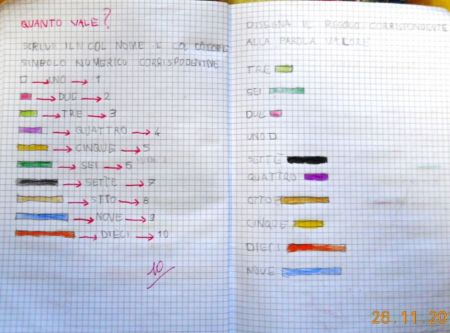 QUANTO VALE?
SCRIVI IL N COL NOME E COL
SIMBOLO NUMERICO CORRISPONDENTE
UNO → 1
DUE → 2
TRE → 3
QUATTRO → 4
CINQUE → 5
SEI → 6
SETTE → 7
OTTO → 8
NOVE → 9
DIECI → 10
10
DISEGNA IL REGOLO CORRISPONDENTE
ALLA PAROLA VALORE
TRE
SEI
DUE
UNO
SETTE
QUATTRO
OTTO
CINQUE
DIECI
NOVE
26.11.20